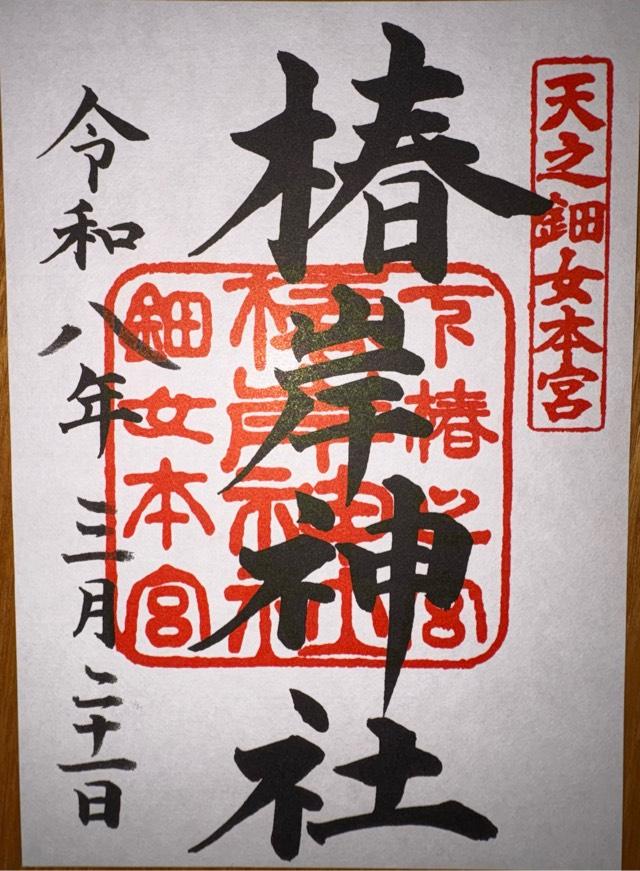 天之鈿女本宮
椿岸神社
下椿之宮
椿岸神社
鈿女本宮
令和八年三月二十一日